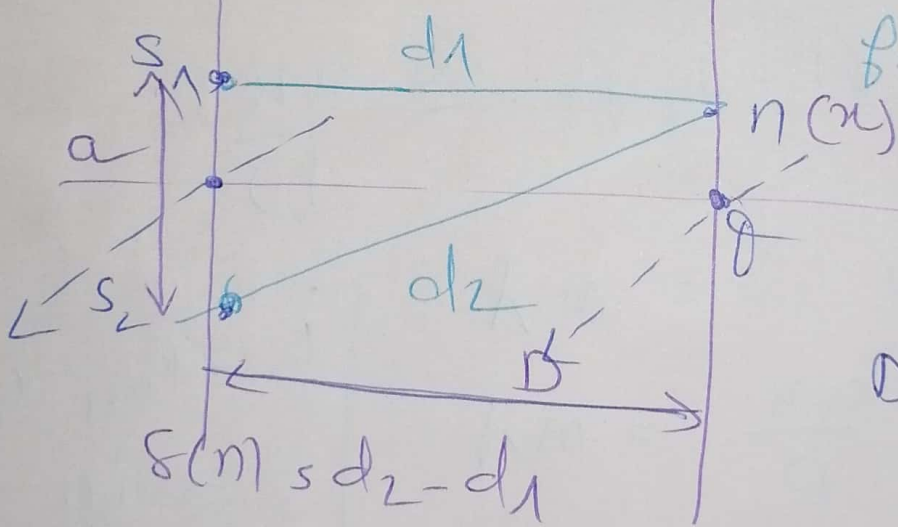 S1
d1
a
n(x)
S2
d2
D
δ(n) = d2 - d1